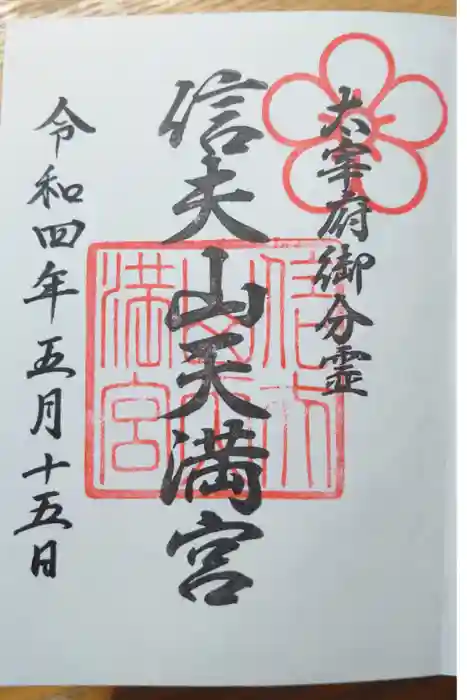 太宰府御分霊
信夫山天満宮
令和四年五月十五日